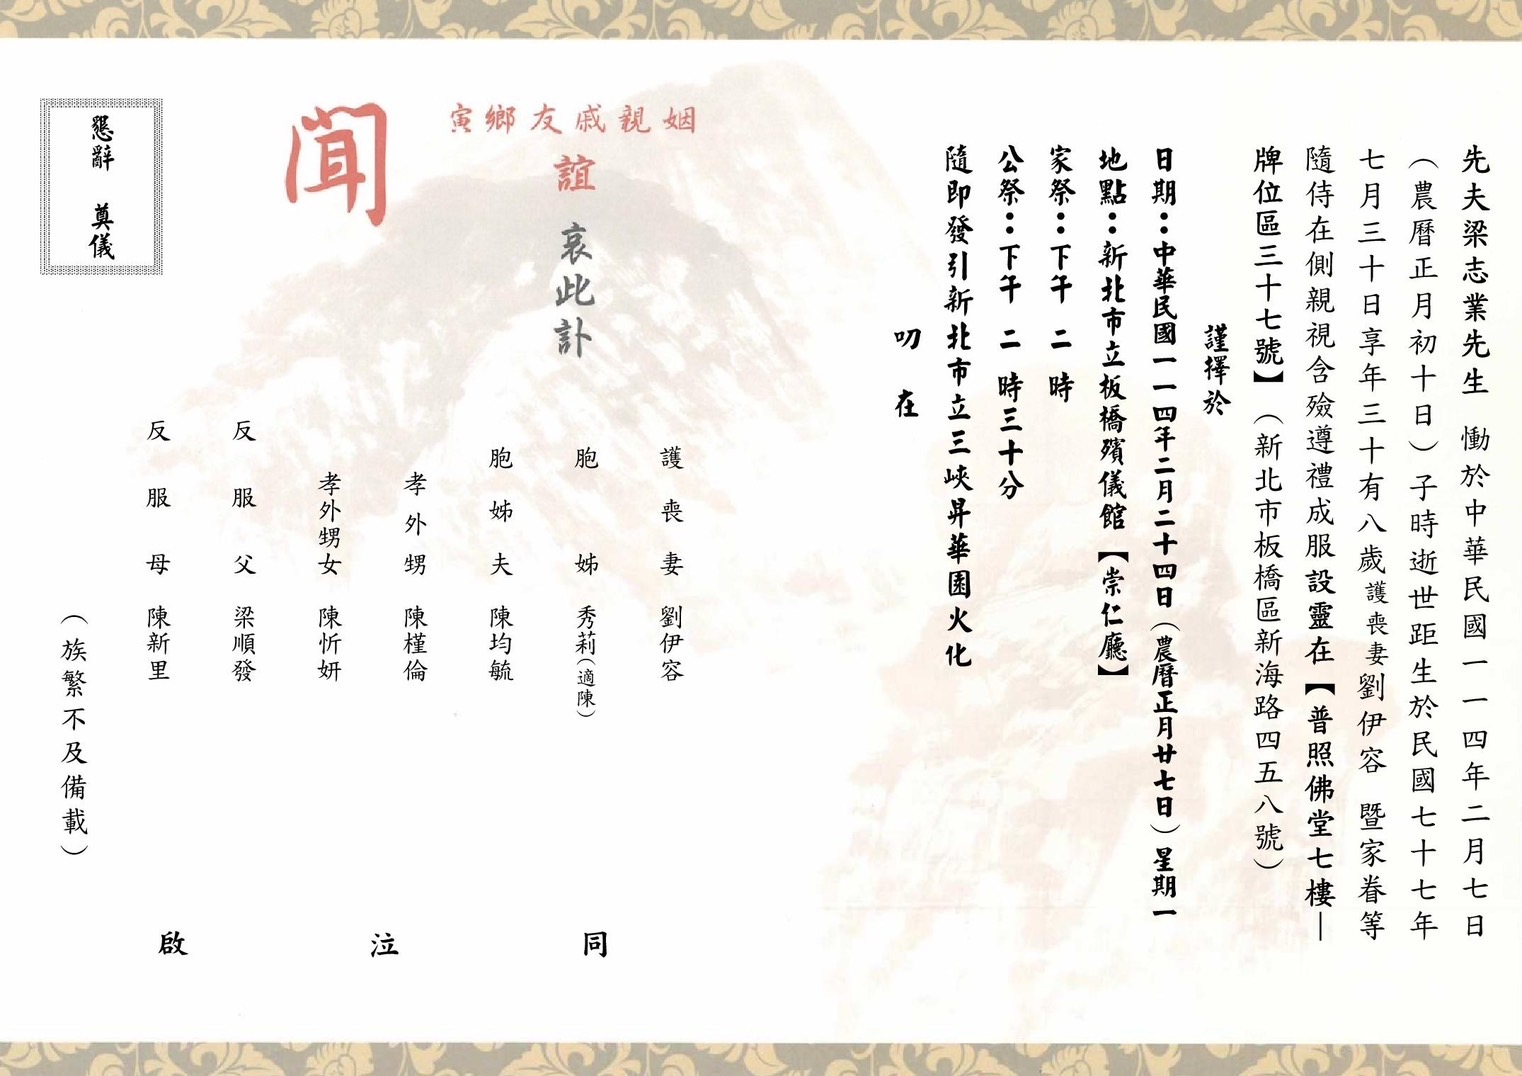 先夫梁志業先生 慟於中華民國一一四年二月七日
（農曆正月初十日）子時逝世距生於民國七十七年
七月三十日享年三十有八歲護喪妻劉伊容 暨家眷等
隨侍在側親視含殮遵禮成服設靈在【普照佛堂七樓—
牌位區三十七號】（新北市板橋區新海路四五八號）
謹擇於
日期：中華民國一一四年二月二十四日（農曆正月廿七日）星期一
地點：新北市立板橋殯儀館【崇仁廳】
家祭：下午 二 時
公祭：下午 二 時三十分
隨即發引新北市立三峽昇華園火化
叨 在
姻親戚友鄉寅
誼 哀此訃
聞
護喪妻 劉伊容
胞姊 秀莉（適陳）
胞姊夫 陳均毓
孝外甥 陳槿倫
孝外甥女 陳忻妍
反服父 梁順發
反服母 陳新里
（族繁不及備載）
同 泣 啟
懇辭 奠儀